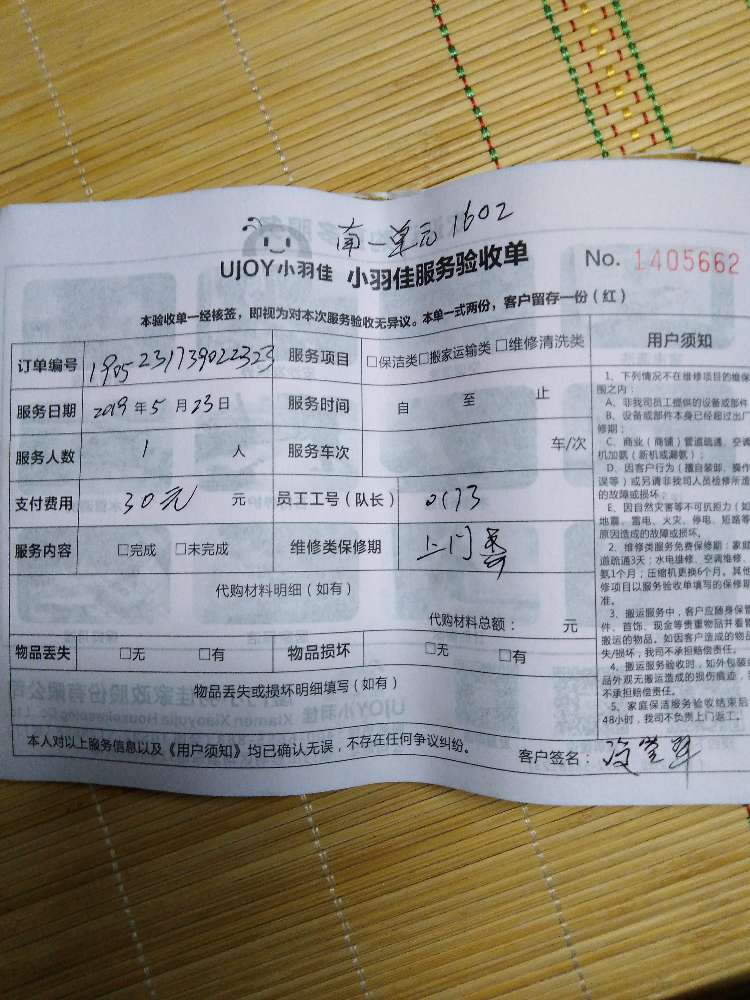 南一单元1602
UJOY小羽佳 小羽佳服务验收单 No. 1405662
本验收单一经核签，即视为对本次服务验收无异议。本单一式两份，客户留存一份（红）
订单编号 1905231739022323 服务项目 □保洁类□搬家运输类□维修清洗类
服务日期 2019年5月23日 服务时间 自 至 止
服务人数 1 人 服务车次 车/次
支付费用 30元 元 员工工号（队长） 0173
服务内容 □完成 □未完成 维修类保修期 上门
代购材料明细（如有）
代购材料总额： 元
物品丢失 □无 □有 物品损坏 □无 □有
物品丢失或损坏明细填写（如有）
本人对以上服务信息以及《用户须知》均已确认无误，不存在任何争议纠纷。 客户签名：
用户须知
1、下列情况不在维修项目的维保
围之内：
A、非我司员工提供的设备或部件
B、设备或部件本身已经超过出厂
修期；
C、商业（商铺）管道疏通、空调
机加氨（新机或漏氨）；
D、因客户行为（擅自装卸、操作
误等）或另请非我司人员检修所造
的故障或损坏
E、因自然灾害等不可抗拒力（如
地震、雷电、火灾、停电、短路等
原因造成的故障或损坏。
2、维修类服务免费保修期：家庭
道疏通3天；水电维修、空调维修、
氨1个月；压缩机更换6个月。其他
修项目以服务验收单填写的保修期
准。
3、搬运服务中，客户应随身保管
件、首饰、现金等贵重物品并看管
搬运的物品。如因客户造成的物品
失/损坏，我司不承担赔偿责任。
4、搬运服务验收时，如外包装或
品外观无搬运造成的损伤痕迹，我
不承担赔偿责任。
5、家庭保洁服务验收结束后
48小时，我司不负责上门返工。